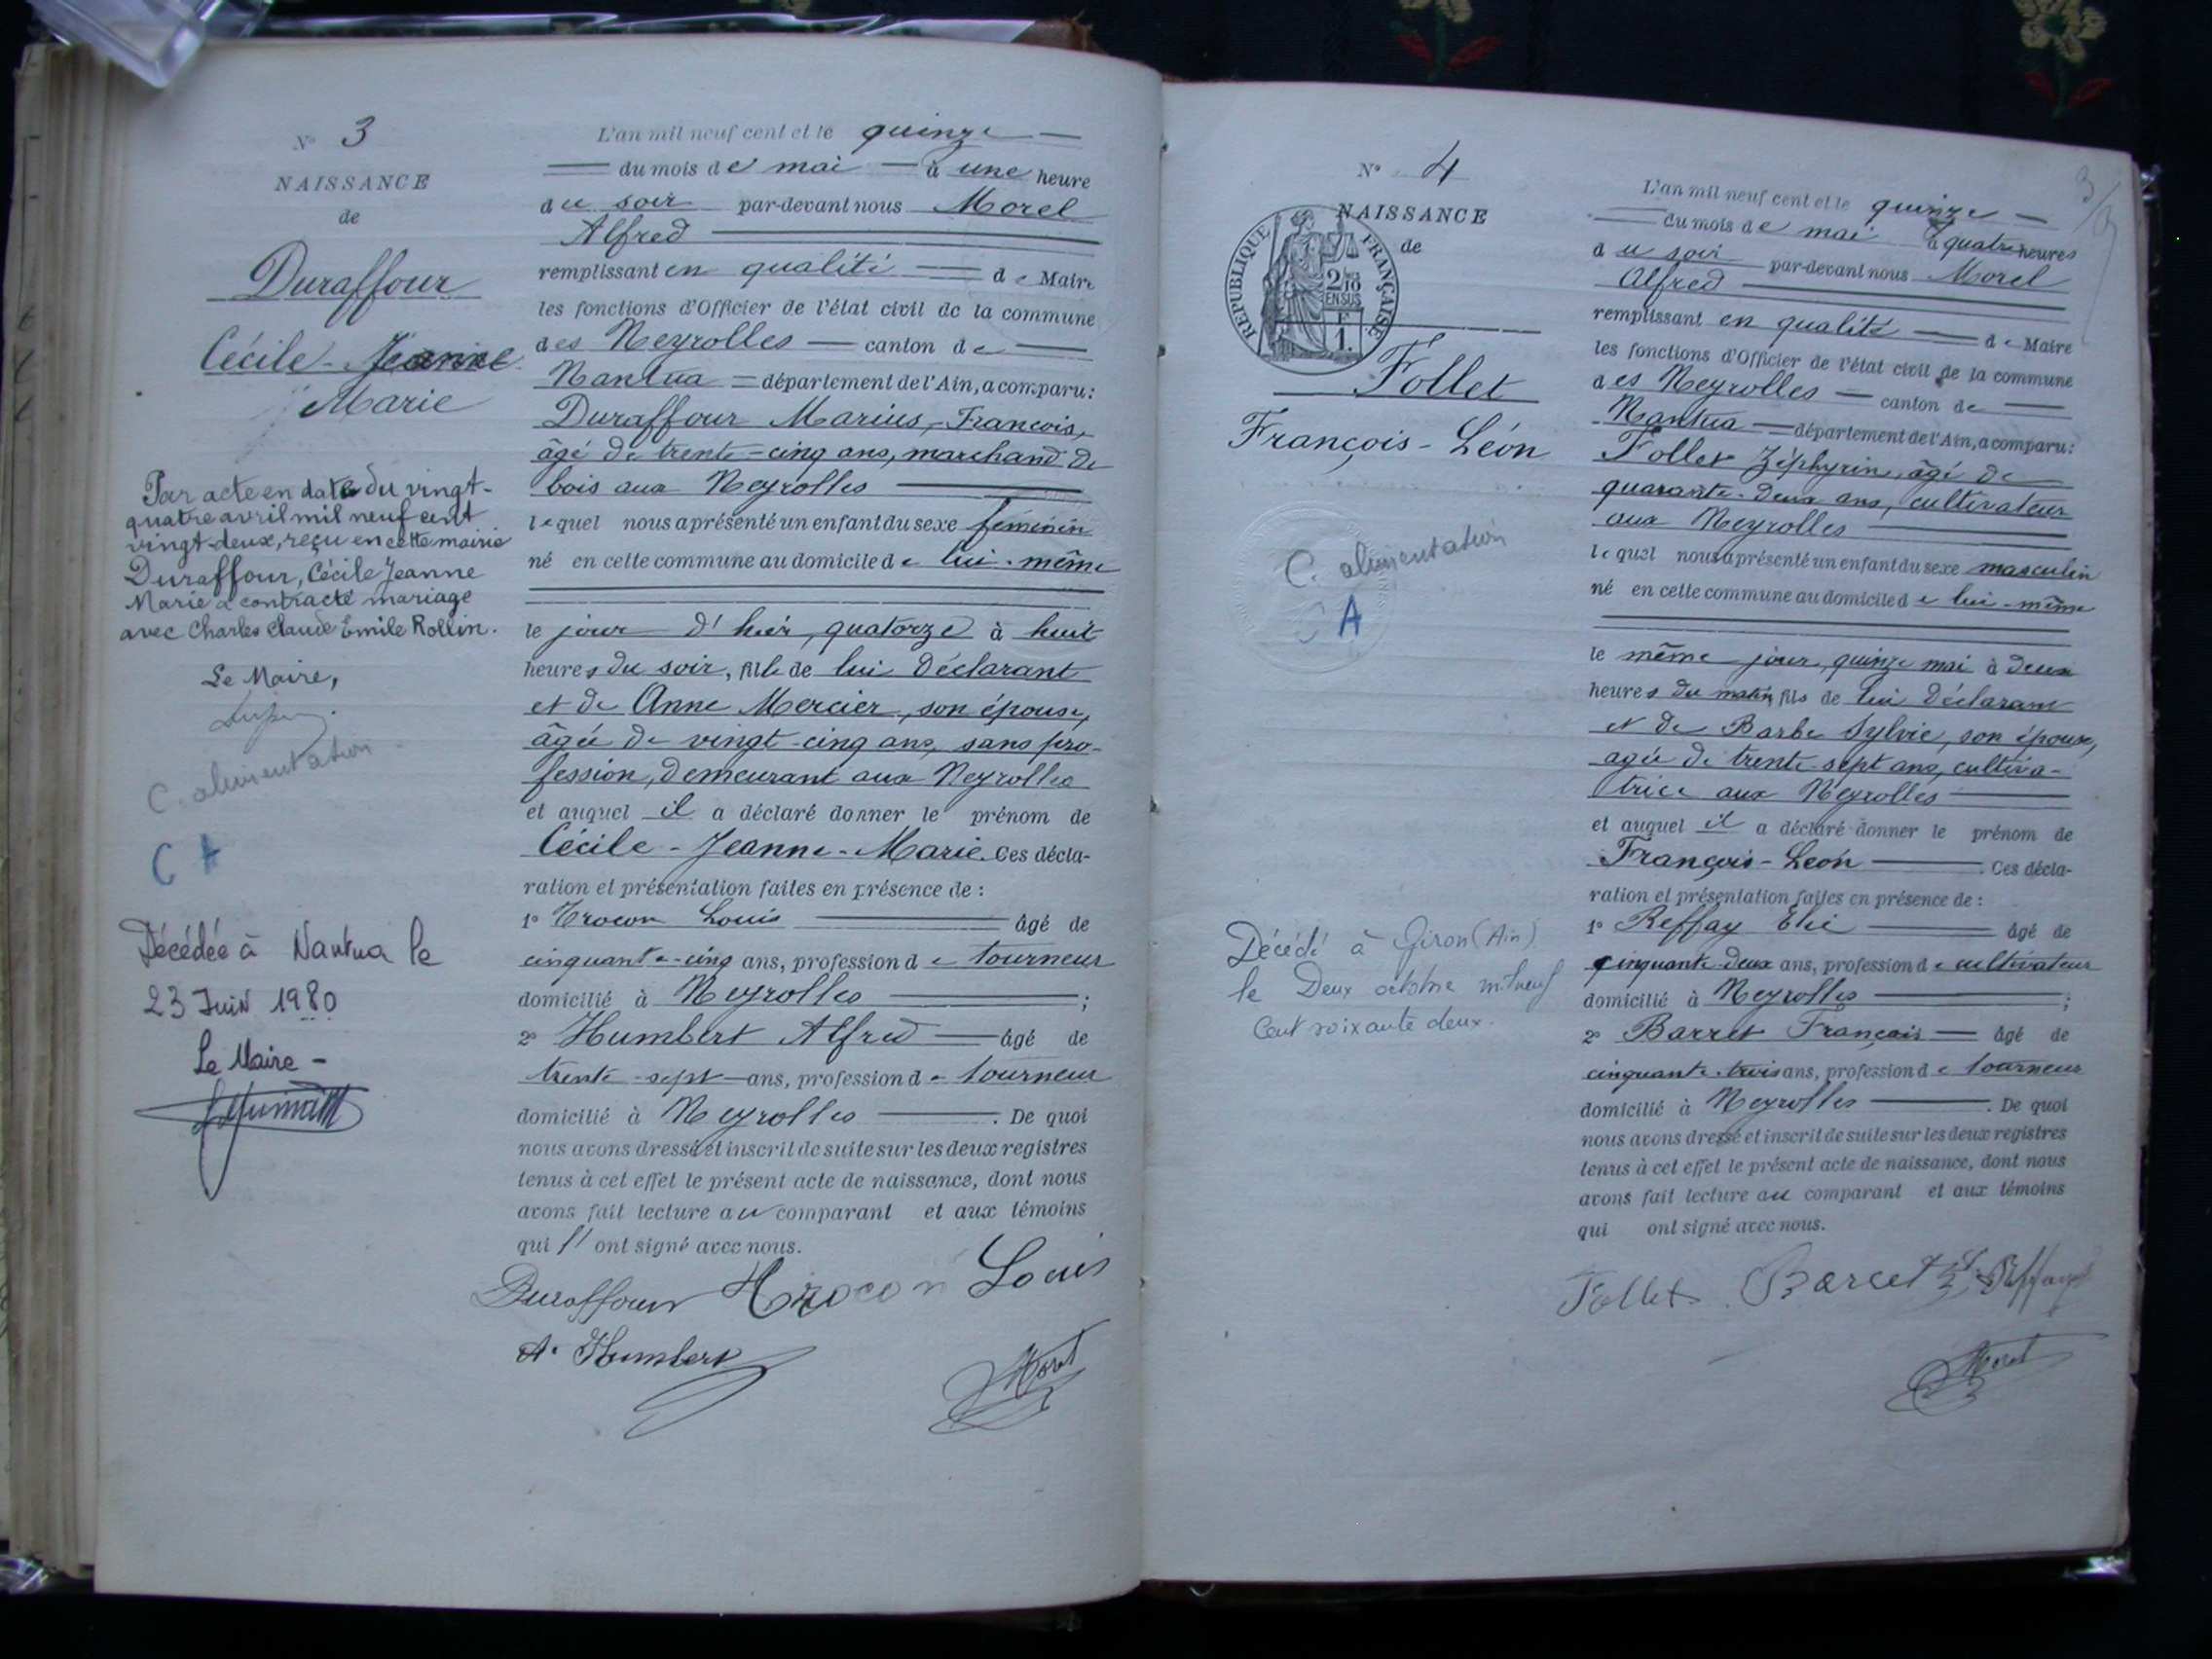 N° 3
NAISSANCE
de
Duraffour
Cécile-Jeanne
Marie
Par acte en date du vingt-
quatre avril mil neuf cent
vingt-deux, reçu en cette mairie
Duraffour, Cécile Jeanne
Marie a contracté mariage
avec Charles Claude Emile Rollin.
Le Maire,
C. alimentation
C A
Décédée à Nantua le
23 Juin 1980
Le Maire -
L'an mil neuf cent et le quinze
du mois de mai à une heure
du soir par-devant nous Morel
Alfred
remplissant en qualité de Maire
les fonctions d'Officier de l'état civil de la commune
des Neyrolles canton de
Nantua département de l'Ain, a comparu:
Duraffour Marius, François,
âgé de trente-cinq ans, marchand de
bois aux Neyrolles
lequel nous a présenté un enfant du sexe féminin
né en cette commune au domicile de lui-même
le jour d'hier, quatorze à huit
heures du soir, fille de lui Déclarant
et de Anne Mercier, son épouse,
âgée de vingt-cinq ans, sans pro-
fession, demeurant aux Neyrolles
et auquel il a déclaré donner le prénom de
Cécile-Jeanne-Marie. Ces décla-
ration et présentation faites en présence de :
1° Trocon Louis âgé de
cinquante-cinq ans, profession de tourneur
domicilié à Neyrolles ;
2° Humbert Alfred âgé de
trente-sept ans, profession de tourneur
domicilié à Neyrolles . De quoi
nous avons dressé et inscrit de suite sur les deux registres
tenus à cet effet le présent acte de naissance, dont nous
avons fait lecture au comparant et aux témoins
qui ont signé avec nous.
Duraffour Trocon Louis
A. Humbert Morel
3
N° 4
NAISSANCE
de
RÉPUBLIQUE FRANÇAISE
2/10
EN SUS
F
1.
Follet
François-Léon
C. alimentation
C A
Décédé à Giron (Ain)
le Deux octobre mil neuf
Cent soixante deux.
L'an mil neuf cent et le quinze
du mois de mai à quatre heures
du soir par-devant nous Morel
Alfred
remplissant en qualité de Maire
les fonctions d'Officier de l'état civil de la commune
des Neyrolles canton de
Nantua département de l'Ain, a comparu:
Follet Zéphyrin, âgé de
quarante-deux ans, cultivateur
aux Neyrolles
lequel nous a présenté un enfant du sexe masculin
né en cette commune au domicile de lui-même
le même jour, quinze mai à deux
heures du matin, fils de lui Déclarant
et de Barbe Sylvie, son épouse,
agée de trente-sept ans, cultiva-
trice aux Neyrolles
et auquel il a déclaré donner le prénom de
François-Léon . Ces décla-
ration et présentation faites en présence de :
1° Reffay Elie âgé de
cinquante-deux ans, profession de cultivateur
domicilié à Neyrolles ;
2° Barret François âgé de
cinquante-trois ans, profession de tourneur
domicilié à Neyrolles . De quoi
nous avons dressé et inscrit de suite sur les deux registres
tenus à cet effet le présent acte de naissance, dont nous
avons fait lecture au comparant et aux témoins
qui ont signé avec nous.
Follet Barret Reffay
Morel